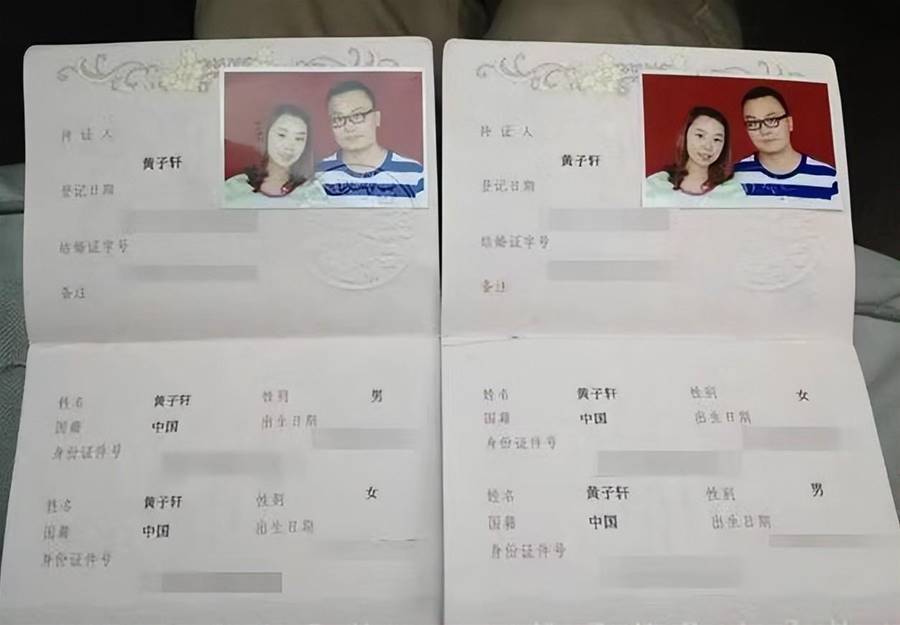 持证人
黄子轩
登记日期
结婚证字号
备注
姓名 黄子轩 性别 男
国籍 中国 出生日期
身份证件号
姓名 黄子轩 性别 女
国籍 中国 出生日期
身份证件号
持证人
黄子轩
登记日期
结婚证字号
备注
姓名 黄子轩 性别 女
国籍 中国 出生日期
身份证件号
姓名 黄子轩 性别 男
国籍 中国 出生日期
身份证件号